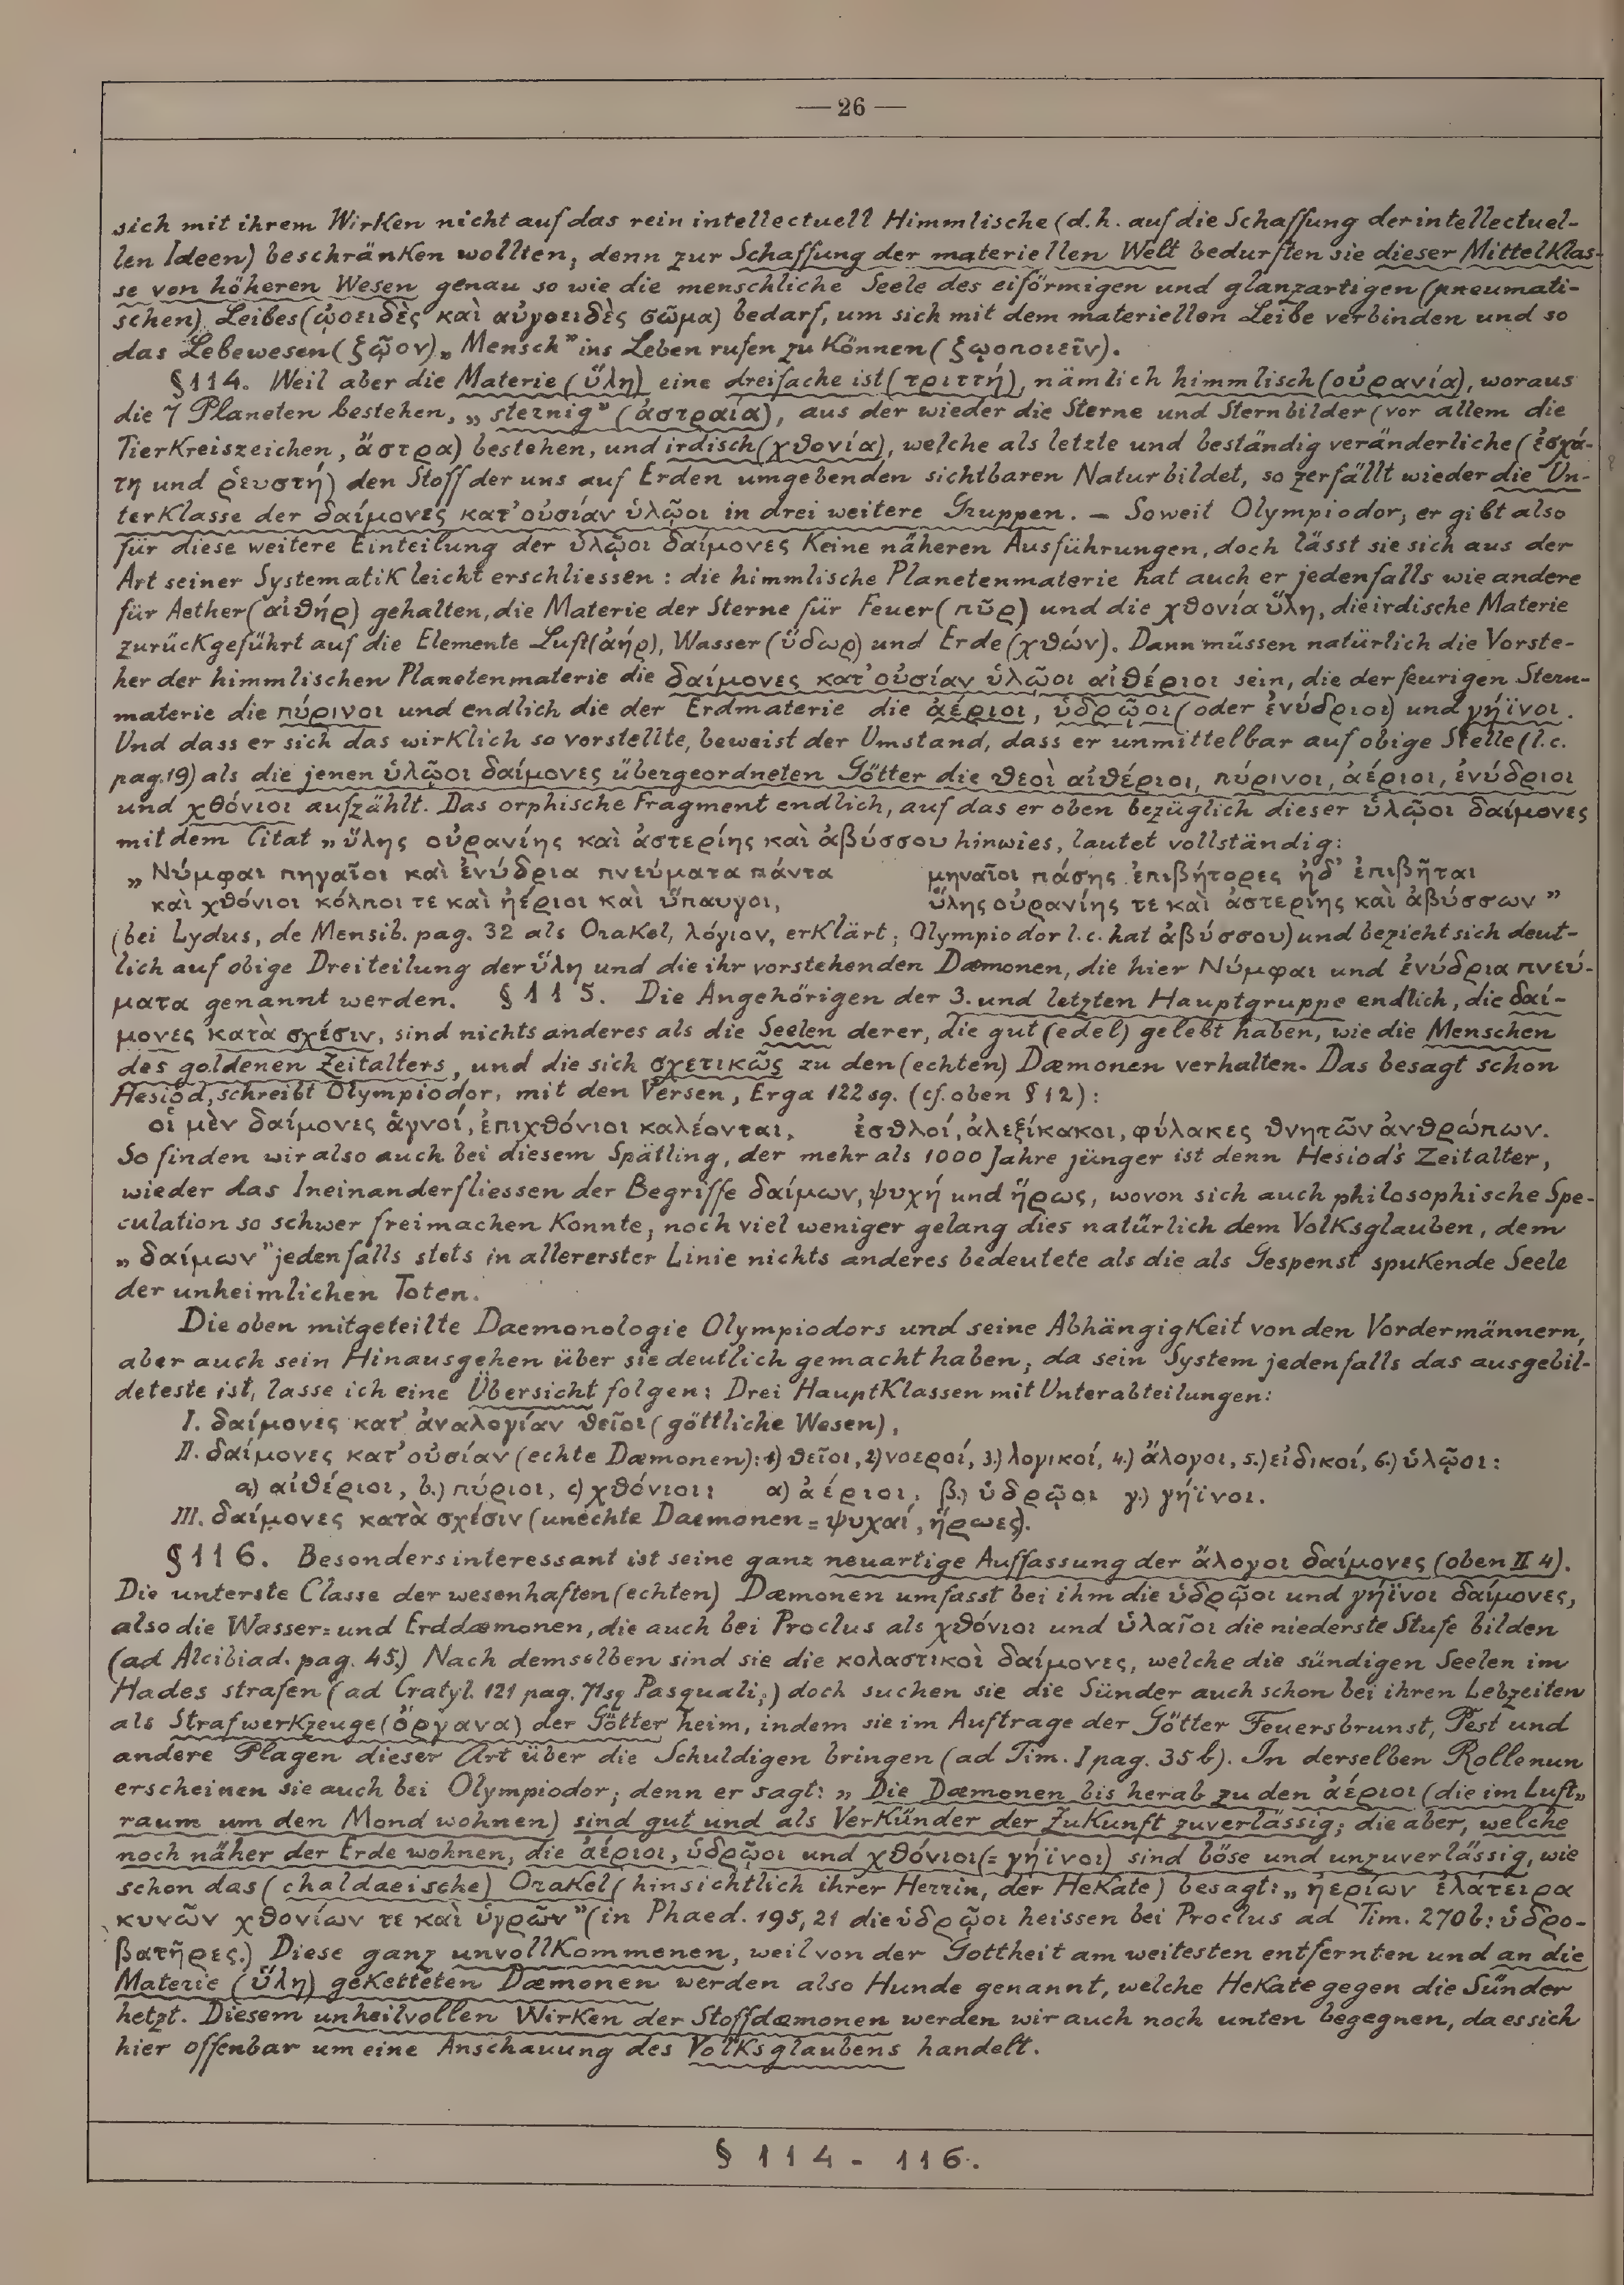 — 26 —
sich mit ihrem Wirken nicht auf das rein intellectuell Himmlische (d.h. auf die Schaffung der intellectuel-
len Ideen) beschränken wollten; denn zur Schaffung der materiellen Welt bedurften sie dieser Mittelklas-
se von höheren Wesen genau so wie die menschliche Seele des eiförmigen und glanzartigen (pneumati-
schen) Leibes (ᾠοειδὲς καὶ αὐγοειδὲς σῶμα) bedarf, um sich mit dem materiellen Leibe verbinden und so
das Lebewesen (ξῷον) „Mensch” ins Leben rufen zu können (ξῳοποιεῖν).
§114. Weil aber die Materie (ὕλη) eine dreifache ist (τριττή), nämlich himmlisch (οὐρανία), woraus
die 7 Planeten bestehen, „sternig” (ἀστραία), aus der wieder die Sterne und Sternbilder (vor allem die
Tierkreiszeichen, ἄστρα) bestehen, und irdisch (χθονία), welche als letzte und beständig veränderliche (ἐσχά-
τη und ῥευστή) den Stoff der uns auf Erden umgebenden sichtbaren Natur bildet, so zerfällt wieder die Un-
terklasse der δαίμονες κατ' οὐσίαν ὑλῷοι in drei weitere Gruppen. — Soweit Olympiodor; er gibt also
für diese weitere Einteilung der ὑλῷοι δαίμονες keine näheren Ausführungen, doch lässt sie sich aus der
Art seiner Systematik leicht erschliessen: die himmlische Planetenmaterie hat auch er jedenfalls wie andere
für Aether (αἰθήρ) gehalten, die Materie der Sterne für Feuer (πῦρ) und die χθονία ὕλη, die irdische Materie
zurückgeführt auf die Elemente Luft (ἀήρ), Wasser (ὕδωρ) und Erde (χθών). Dann müssen natürlich die Vorste-
her der himmlischen Planetenmaterie die δαίμονες κατ' οὐσίαν ὑλῷοι αἰθέριοι sein, die der feurigen Stern-
materie die πύρινοι und endlich die der Erdmaterie die ἀέριοι, ὑδρῷοι (oder ἐνύδριοι) und γήϊνοι.
Und dass er sich das wirklich so vorstellte, beweist der Umstand, dass er unmittelbar auf obige Stelle (l.c.
pag. 19) als die jenen ὑλῷοι δαίμονες übergeordneten Götter die θεοὶ αἰθέριοι, πύρινοι, ἀέριοι, ἐνύδριοι
und χθόνιοι aufzählt. Das orphische Fragment endlich, auf das er oben bezüglich dieser ὑλῷοι δαίμονες
mit dem Citat „ὕλης οὐρανίης καὶ ἀστερίης καὶ ἀβύσσου hinwies, lautet vollständig:
„Νύμφαι πηγαῖοι καὶ ἐνύδρια πνεύματα πάντα μηναῖοι πάσης ἐπιβήτορες ἠδ' ἐπιβῆται
καὶ χθόνιοι κόλποι τε καὶ ἠέριοι καὶ ὕπαυγοι, ὕλης οὐρανίης τε καὶ ἀστερίης καὶ ἀβύσσων”
(bei Lydus, de Mensib. pag. 32 als Orakel, λόγιον, erklärt; Olympiodor l.c. hat ἀβύσσου) und bezieht sich deut-
lich auf obige Dreiteilung der ὕλη und die ihr vorstehenden Dæmonen, die hier Νύμφαι und ἐνύδρια πνεύ-
ματα genannt werden. §115. Die Angehörigen der 3. und letzten Hauptgruppe endlich, die δαί-
μονες κατὰ σχέσιν, sind nichts anderes als die Seelen derer, die gut (edel) gelebt haben, wie die Menschen
des goldenen Zeitalters, und die sich σχετικῶς zu den (echten) Dæmonen verhalten. Das besagt schon
Hesiod, schreibt Olympiodor, mit den Versen, Erga 122 sq. (cf. oben §12):
οἱ μὲν δαίμονες ἁγνοί, ἐπιχθόνιοι καλέονται, ἐσθλοί, ἀλεξίκακοι, φύλακες θνητῶν ἀνθρώπων.
So finden wir also auch bei diesem Spätling, der mehr als 1000 Jahre jünger ist denn Hesiod's Zeitalter,
wieder das Ineinanderfliessen der Begriffe δαίμων, ψυχή und ἥρως, wovon sich auch philosophische Spe-
culation so schwer freimachen konnte; noch viel weniger gelang dies natürlich dem Volksglauben, dem
„δαίμων” jedenfalls stets in allererster Linie nichts anderes bedeutete als die als Gespenst spukende Seele
der unheimlichen Toten.
Die oben mitgeteilte Daemonologie Olympiodors und seine Abhängigkeit von den Vordermännern,
aber auch sein Hinausgehen über sie deutlich gemacht haben; da sein System jedenfalls das ausgebil-
deteste ist, lasse ich eine Übersicht folgen: Drei Hauptklassen mit Unterabteilungen:
I. δαίμονες κατ' ἀναλογίαν θεῖοι (göttliche Wesen),
II. δαίμονες κατ' οὐσίαν (echte Dæmonen): 1) θεῖοι, 2) νοεροί, 3.) λογικοί, 4.) ἄλογοι, 5.) εἰδικοί, 6.) ὑλῷοι:
a) αἰθέριοι, b.) πύριοι, c) χθόνιοι: α) ἀέριοι, β.) ὑδρῷοι γ.) γήϊνοι.
III. δαίμονες κατὰ σχέσιν (unechte Daemonen = ψυχαί, ἥρωες).
§116. Besonders interessant ist seine ganz neuartige Auffassung der ἄλογοι δαίμονες (oben II 4).
Die unterste Classe der wesenhaften (echten) Dæmonen umfasst bei ihm die ὑδρῷοι und γήϊνοι δαίμονες,
also die Wasser= und Erddæmonen, die auch bei Proclus als χθόνιοι und ὑλαῖοι die niederste Stufe bilden
(ad Alcibiad. pag. 45.) Nach demselben sind sie die κολαστικοὶ δαίμονες, welche die sündigen Seelen im
Hades strafen (ad Cratyl. 121 pag. 71 sq Pasquali;) doch suchen sie die Sünder auch schon bei ihren Lebzeiten
als Strafwerkzeuge (ὄργανα) der Götter heim, indem sie im Auftrage der Götter Feuersbrunst, Pest und
andere Plagen dieser Art über die Schuldigen bringen (ad Tim. I pag. 35 b). In derselben Rolle nun
erscheinen sie auch bei Olympiodor; denn er sagt: „Die Dæmonen bis herab zu den ἀέριοι (die im Luft=
raum um den Mond wohnen) sind gut und als Verkünder der Zukunft zuverlässig; die aber, welche
noch näher der Erde wohnen, die ἀέριοι, ὑδρῷοι und χθόνιοι (= γήϊνοι) sind böse und unzuverlässig, wie
schon das (chaldaeische) Orakel (hinsichtlich ihrer Herrin, der Hekate) besagt: „ἠερίων ἐλάτειρα
κυνῶν χθονίων τε καὶ ὑγρῶν” (in Phaed. 195,21 die ὑδρῷοι heissen bei Proclus ad Tim. 270 b: ὑδρο-
βατῆρες.) Diese ganz unvollkommenen, weil von der Gottheit am weitesten entfernten und an die
Materie (ὕλη) geketteten Dæmonen werden also Hunde genannt, welche Hekate gegen die Sünder
hetzt. Diesem unheilvollen Wirken der Stoffdæmonen werden wir auch noch unten begegnen, da es sich
hier offenbar um eine Anschauung des Volksglaubens handelt.
§ 114 - 116.